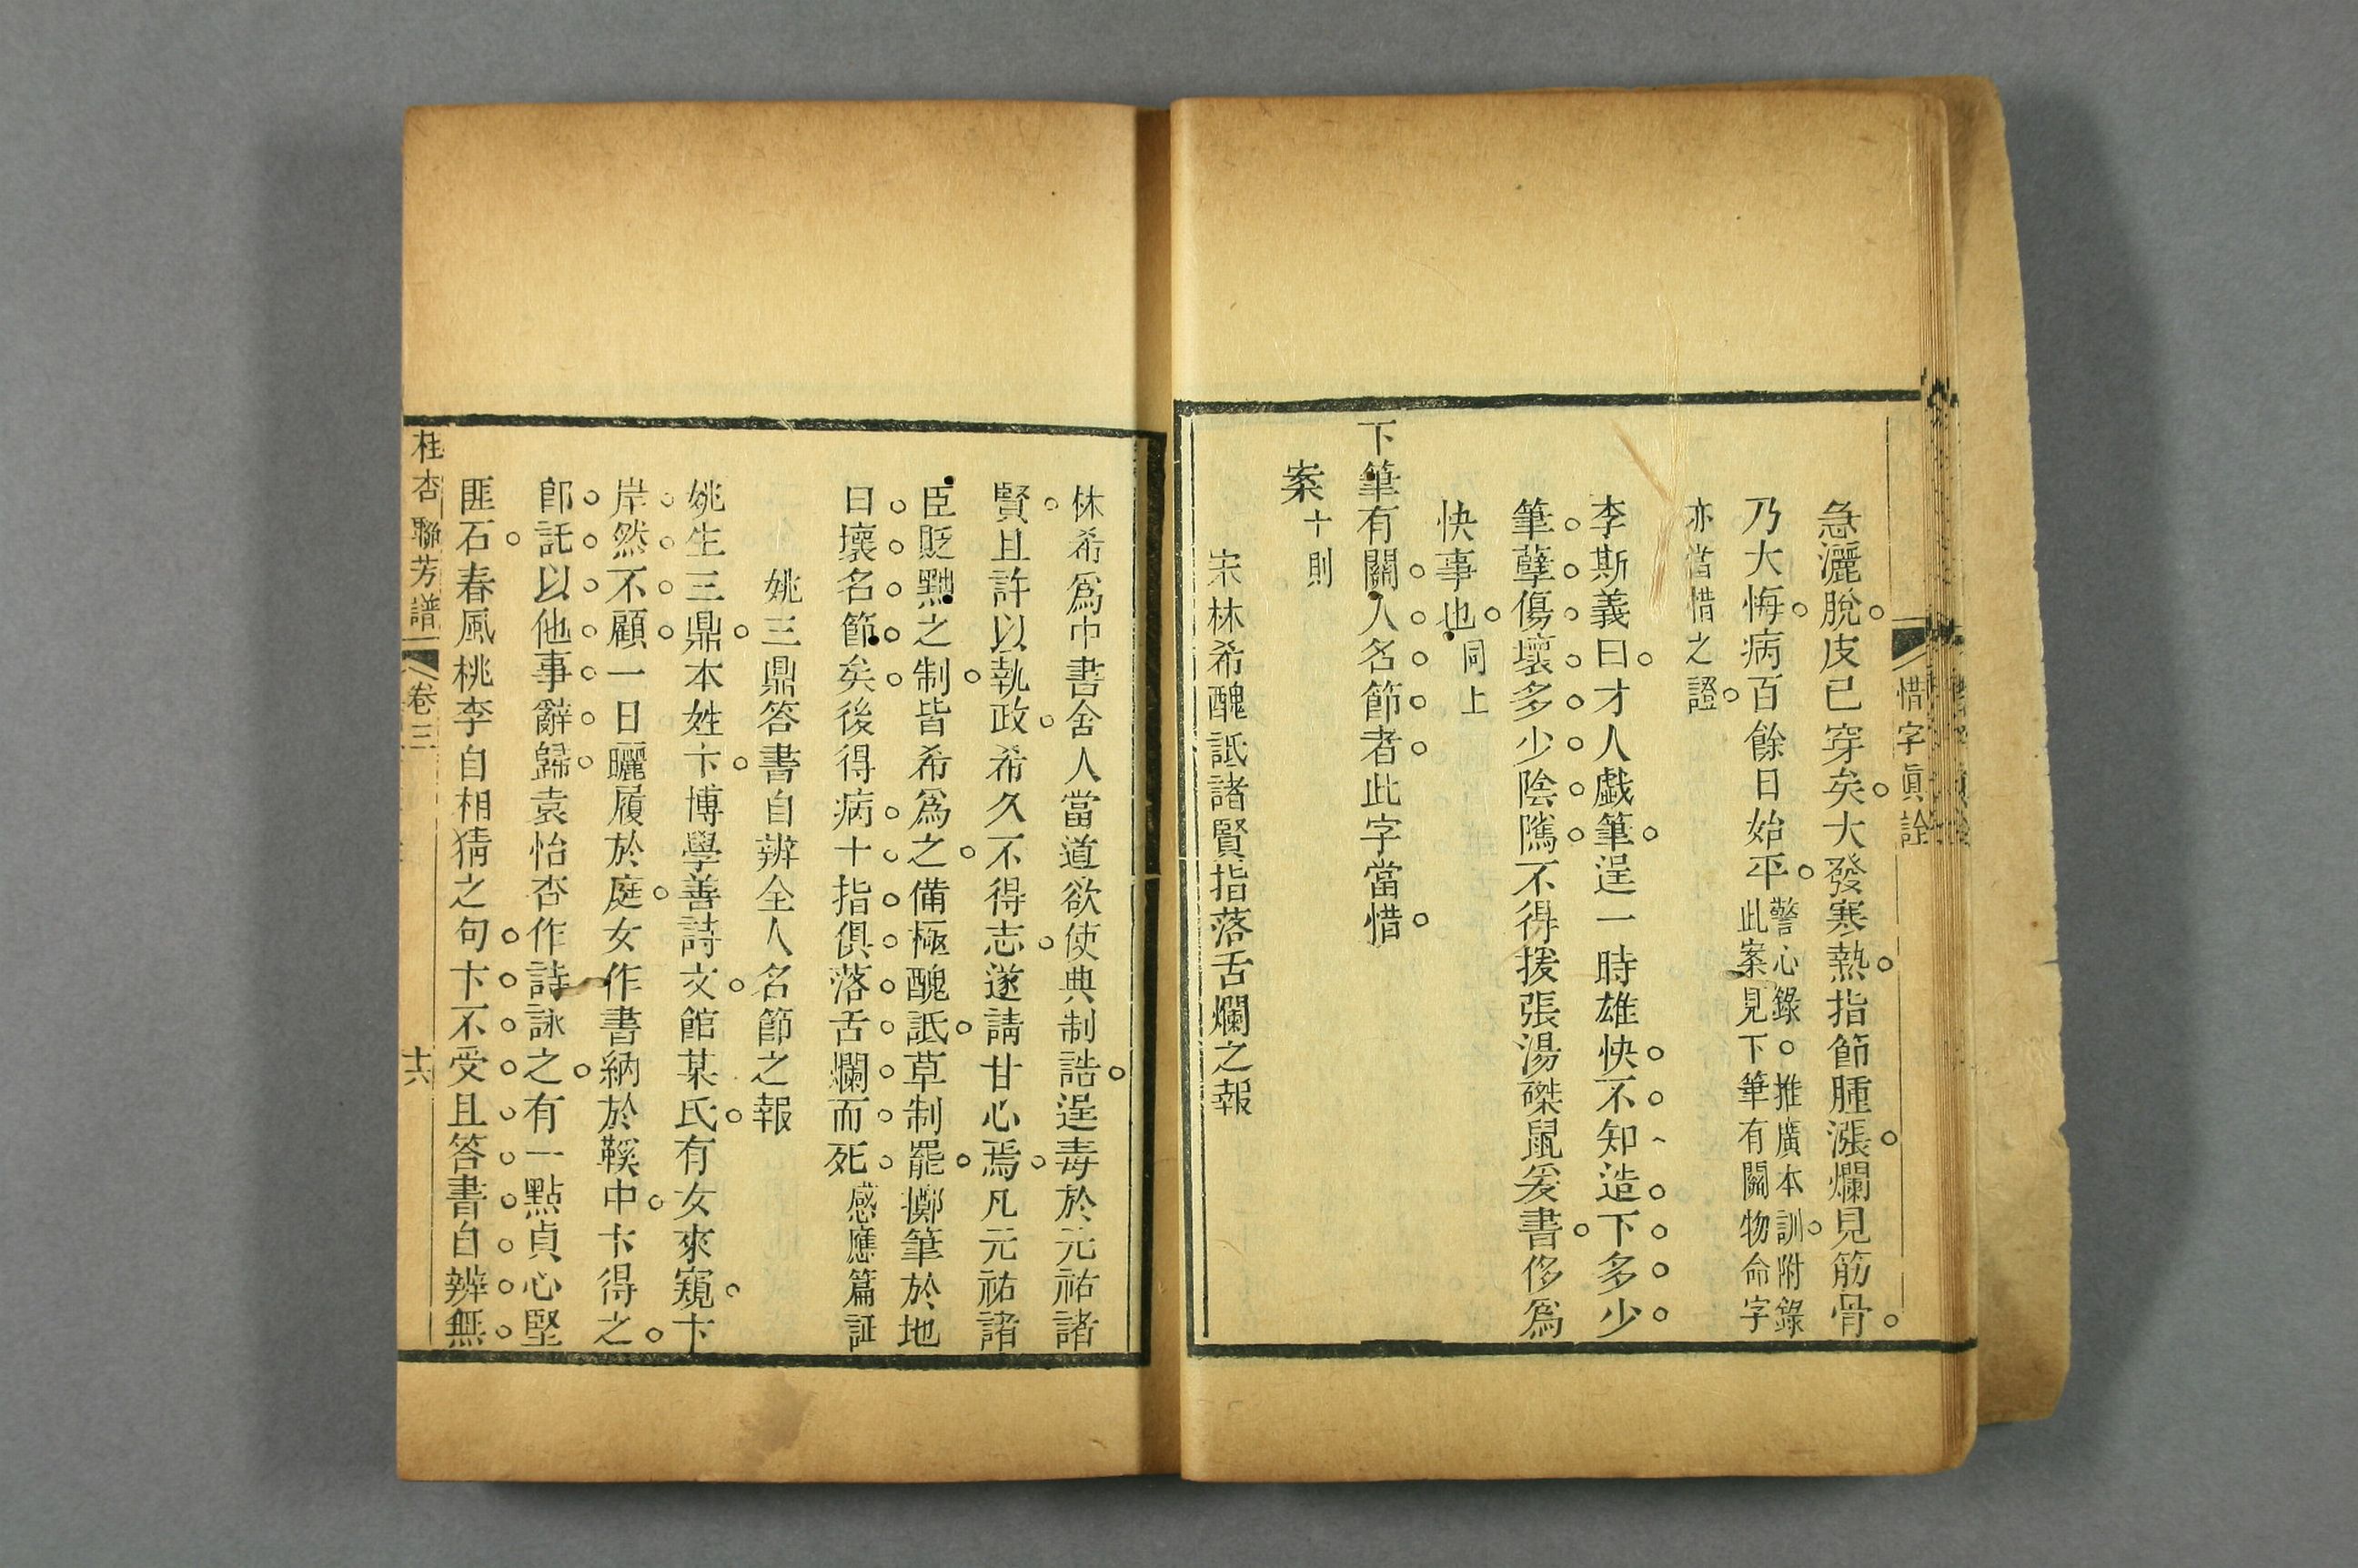 惜字眞詮
急灑脫皮已穿矣大發寒熱指節腫漲爛見筋骨
乃大悔病百餘日始平警心錄推廣本訓附錄
此案見下筆有關物命字
亦當惜之證
李斯義曰才人戲筆逞一時雄快不知造下多少
筆孽傷壞多少陰隲不得援張湯磔鼠爰書侈爲
快事也同上
下筆有關人名節者此字當惜
案十則
宋林希醜詆諸賢指落舌爛之報
林希爲中書舍人當道欲使典制誥逞毒於元祐諸
賢且許以執政希久不得志遂請甘心焉凡元祐諸
臣貶黜之制皆希爲之備極醜詆草制罷擲筆於地
曰壞名節矣後得病十指俱落舌爛而死感應篇証
姚三鼎答書自辨全人名節之報
姚生三鼎本姓卞博學善詩文館某氏有女來窺卞
岸然不顧一日曬履於庭女作書納於鞵中卞得之
卽託以他事辭歸袁怡杏作詩詠之有一點貞心堅
匪石春風桃李自相猜之句卞不受且答書自辨無
桂杏聯芳譜
卷三
十六